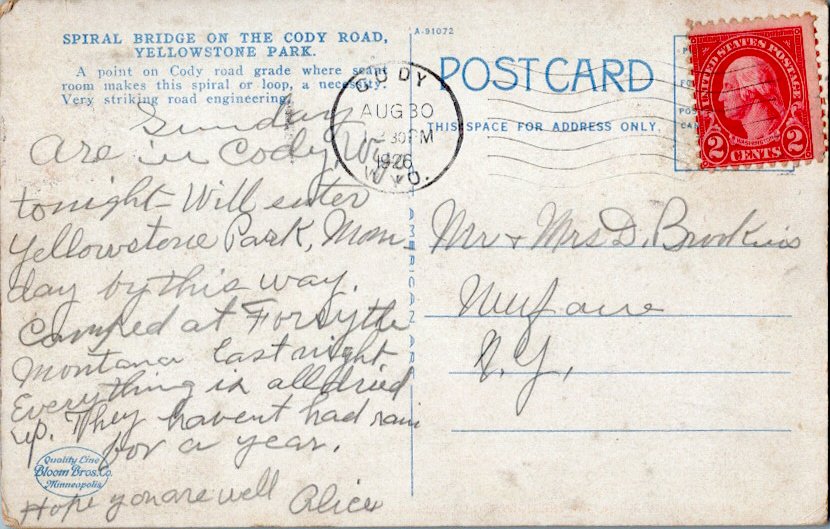 SPIRAL BRIDGE ON THE CODY ROAD,
YELLOWSTONE PARK.
A point on Cody road grade where scant
room makes this spiral or loop, a necessity.
Very striking road engineering.
Sunday
Are in Cody, Wyo.
tonight- Will enter
Yellowstone Park, Mon-
day by this way.
Camped at Forsythe
Montana last night
Everything is all dried
up. They havent had rain
for a year.
Hope you are well
Alice
Quality Line
Bloom Bros. Co.
Minneapolis
A-91072
POST CARD
THIS SPACE FOR ADDRESS ONLY.
CODY
AUG 30
30 PM
1926
WYO.
UNITED STATES POSTAGE
WASHINGTON
2 CENTS 2
AMERICAN ART
Mr + Mrs D. Brookins
Newfane
N.Y.